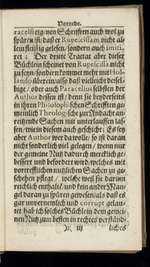 Vorrede.
racelli eignen Schrifften auch wol zu
spüren ist/ daß er Rupecissam nicht al-
lein fleissig gelesen/ sondern auch imiti-
rt. Der dritte Tractat aber dieser
Büchlein scheinet von Rupecissa nicht
zu seyn/ sondern kommet mehr mit Hol-
lando überein/ also daß vielleicht dersel-
bige/ oder auch Paracelsus selbsten der
Author dessen ist/ denn sie beyderseits
in ihren Philosophischen Schrifften ge-
meiniglich Theologische zur Andacht an-
reitzende Sachen mit unterlauffen las-
sen/ wie in diesem auch geschicht. Es sey
aber Author wer da wolle/ so ist daran
nicht sonderlich viel gelegen/ wenn nur
der gemeine Nutz dadurch mercklich ge-
bessert und befordert wird/ welches mit
vortrefflichen nutzlichen Sachen zu ge-
schehen pflegt/ welche weil sie darinn
reichlich enthalten/ und kein ander Man-
gel daran zu spüren gewesen/ als daß es
gar unvernehmlich und corrupt gelau-
tet hab ich solches Büchlein dem gemei-
nen Nutz zum besten in rechtes verständ-
lichts